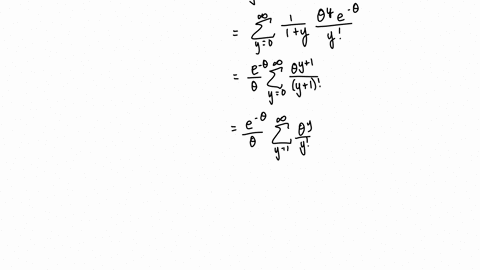 = ∑_{y=0}^{∞} 1/(1+y) θ^y e^{-θ}/y!
= e^{-θ}/θ ∑_{y=0}^{∞} θ^{y+1}/(y+1)!
= e^{-θ}/θ ∑_{y=1}^{∞} θ^y/y!